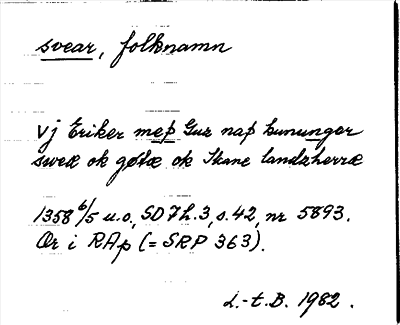 svear, folknamn
Vj Eriker meþ Guz naþ kununger
sweæ ok gøtæ ok Skane landzherræ
1358 6/5 u.o., SD 7 h.3, s.42, nr 5893.
Or i RAp (= SRP 363).
L.-t.B. 1982.